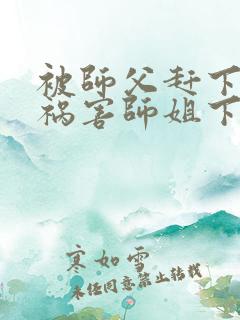 被師父赶下
祸害師姐下
寒如雪
未任同意禁止转载